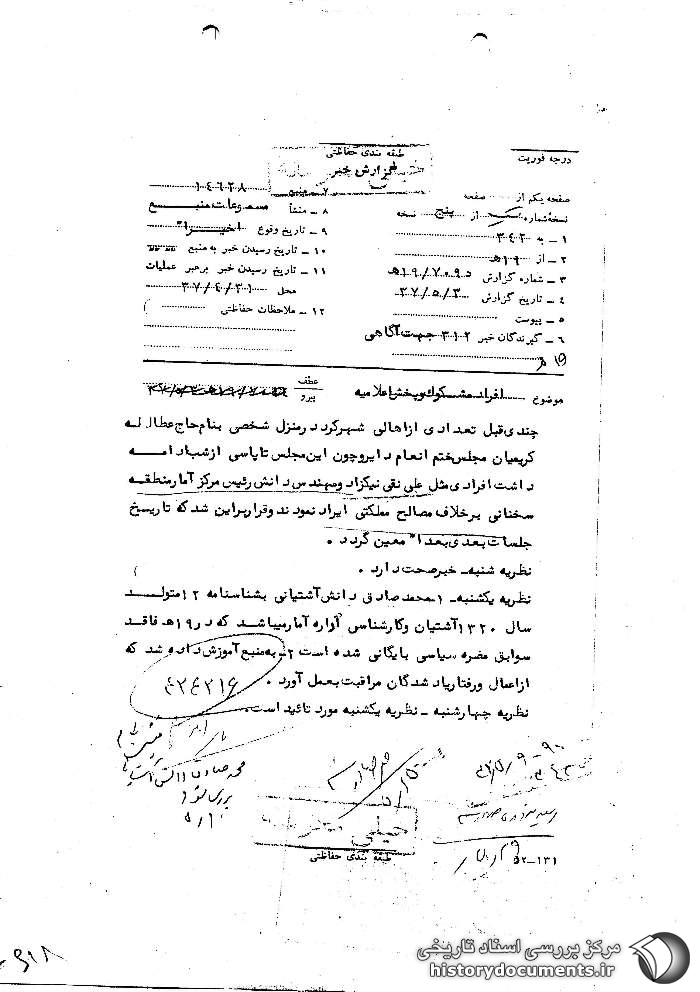 درجه فوریت
طبقه بندی حفاظتی
گزارش خبر
صفحه یکم از صفحه
نسخه شماره یک از پنج نسخه
۱ - به ۳۴۲
۲ - از ۱۹هـ
۳ - شماره گزارش ۱۹/۷۰۹۵هـ
۴ - تاریخ گزارش ۳۷/۵/۳
۵ - پیوست
۶ - گیرندگان خبر ۳۱۲ جهت آگاهی
۷ - منبع ۱۰۴۶۲۸
۸ - منشأ مسموعات منبع
۹ - تاریخ وقوع اخیرا"
۱۰ - تاریخ رسیدن خبر به منبع
۱۱ - تاریخ رسیدن خبر برهبر عملیات
محل ۳۷/۴/۳۱
۱۲ - ملاحظات حفاظتی
موضوع افراد مشکوک وپخش اعلامیه
عطف
پیرو
چندی قبل تعدادی ازاهالی شهرکرد درمنزل شخصی بنام حاج عطااله
کریمیان مجلس ختم انعام دایروچون این مجلس تاپاسی ازشب ادامه
داشت افرادی مثل علی نقی نیکزاد ومهندس دانش رئیس مرکز آمارمنطقه
سخنانی برخلاف مصالح مملکتی ایراد نمودند وقراربراین شد که تاریخ
جلسات بعدی بعدا" معین گردد .
نظریه شنبه - خبرصحت دارد .
نظریه یکشنبه - ۱- محمدصادق دانش آشتیانی بشناسنامه ۱۲ متولد
سال ۱۳۲۰ آشتیان وکارشناس آواره آمارمیباشد که در۱۹هـ فاقد
سوابق مضره سیاسی بایگانی شده است ۲- به منبع آموزش داده شد که
ازاعمال ورفتاریاد شدگان مراقبت بعمل آورد .
نظریه چهارشنبه - نظریه یکشنبه مورد تائید است .
۴۲۴۲۱۶
محمد صادق دانش آشتیانی
بررسی شود
خیلی محرمانه
طبقه بندی حفاظتی
۵۲-۱۳۱
مرکز بررسی اسناد تاریخی
historydocuments.ir